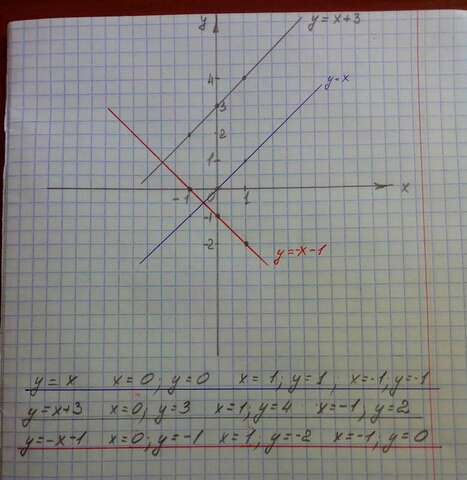 y
y = x+3
y=x
4
3
2
1
-1 0 1 x
-1
-2
y=-x-1
y = x x=0; y=0 x=1; y=1, x=-1, y=-1
y=x+3 x=0, y=3 x=1; y=4 x=-1, y=2
y=-x-1 x=0; y=-1 x=1; y=-2 x=-1; y=0